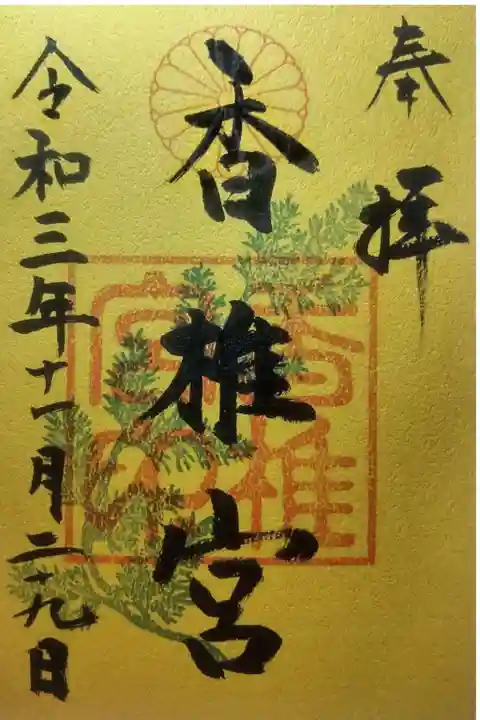 奉拝
香椎宮
香椎宮印
令和三年十一月二十九日